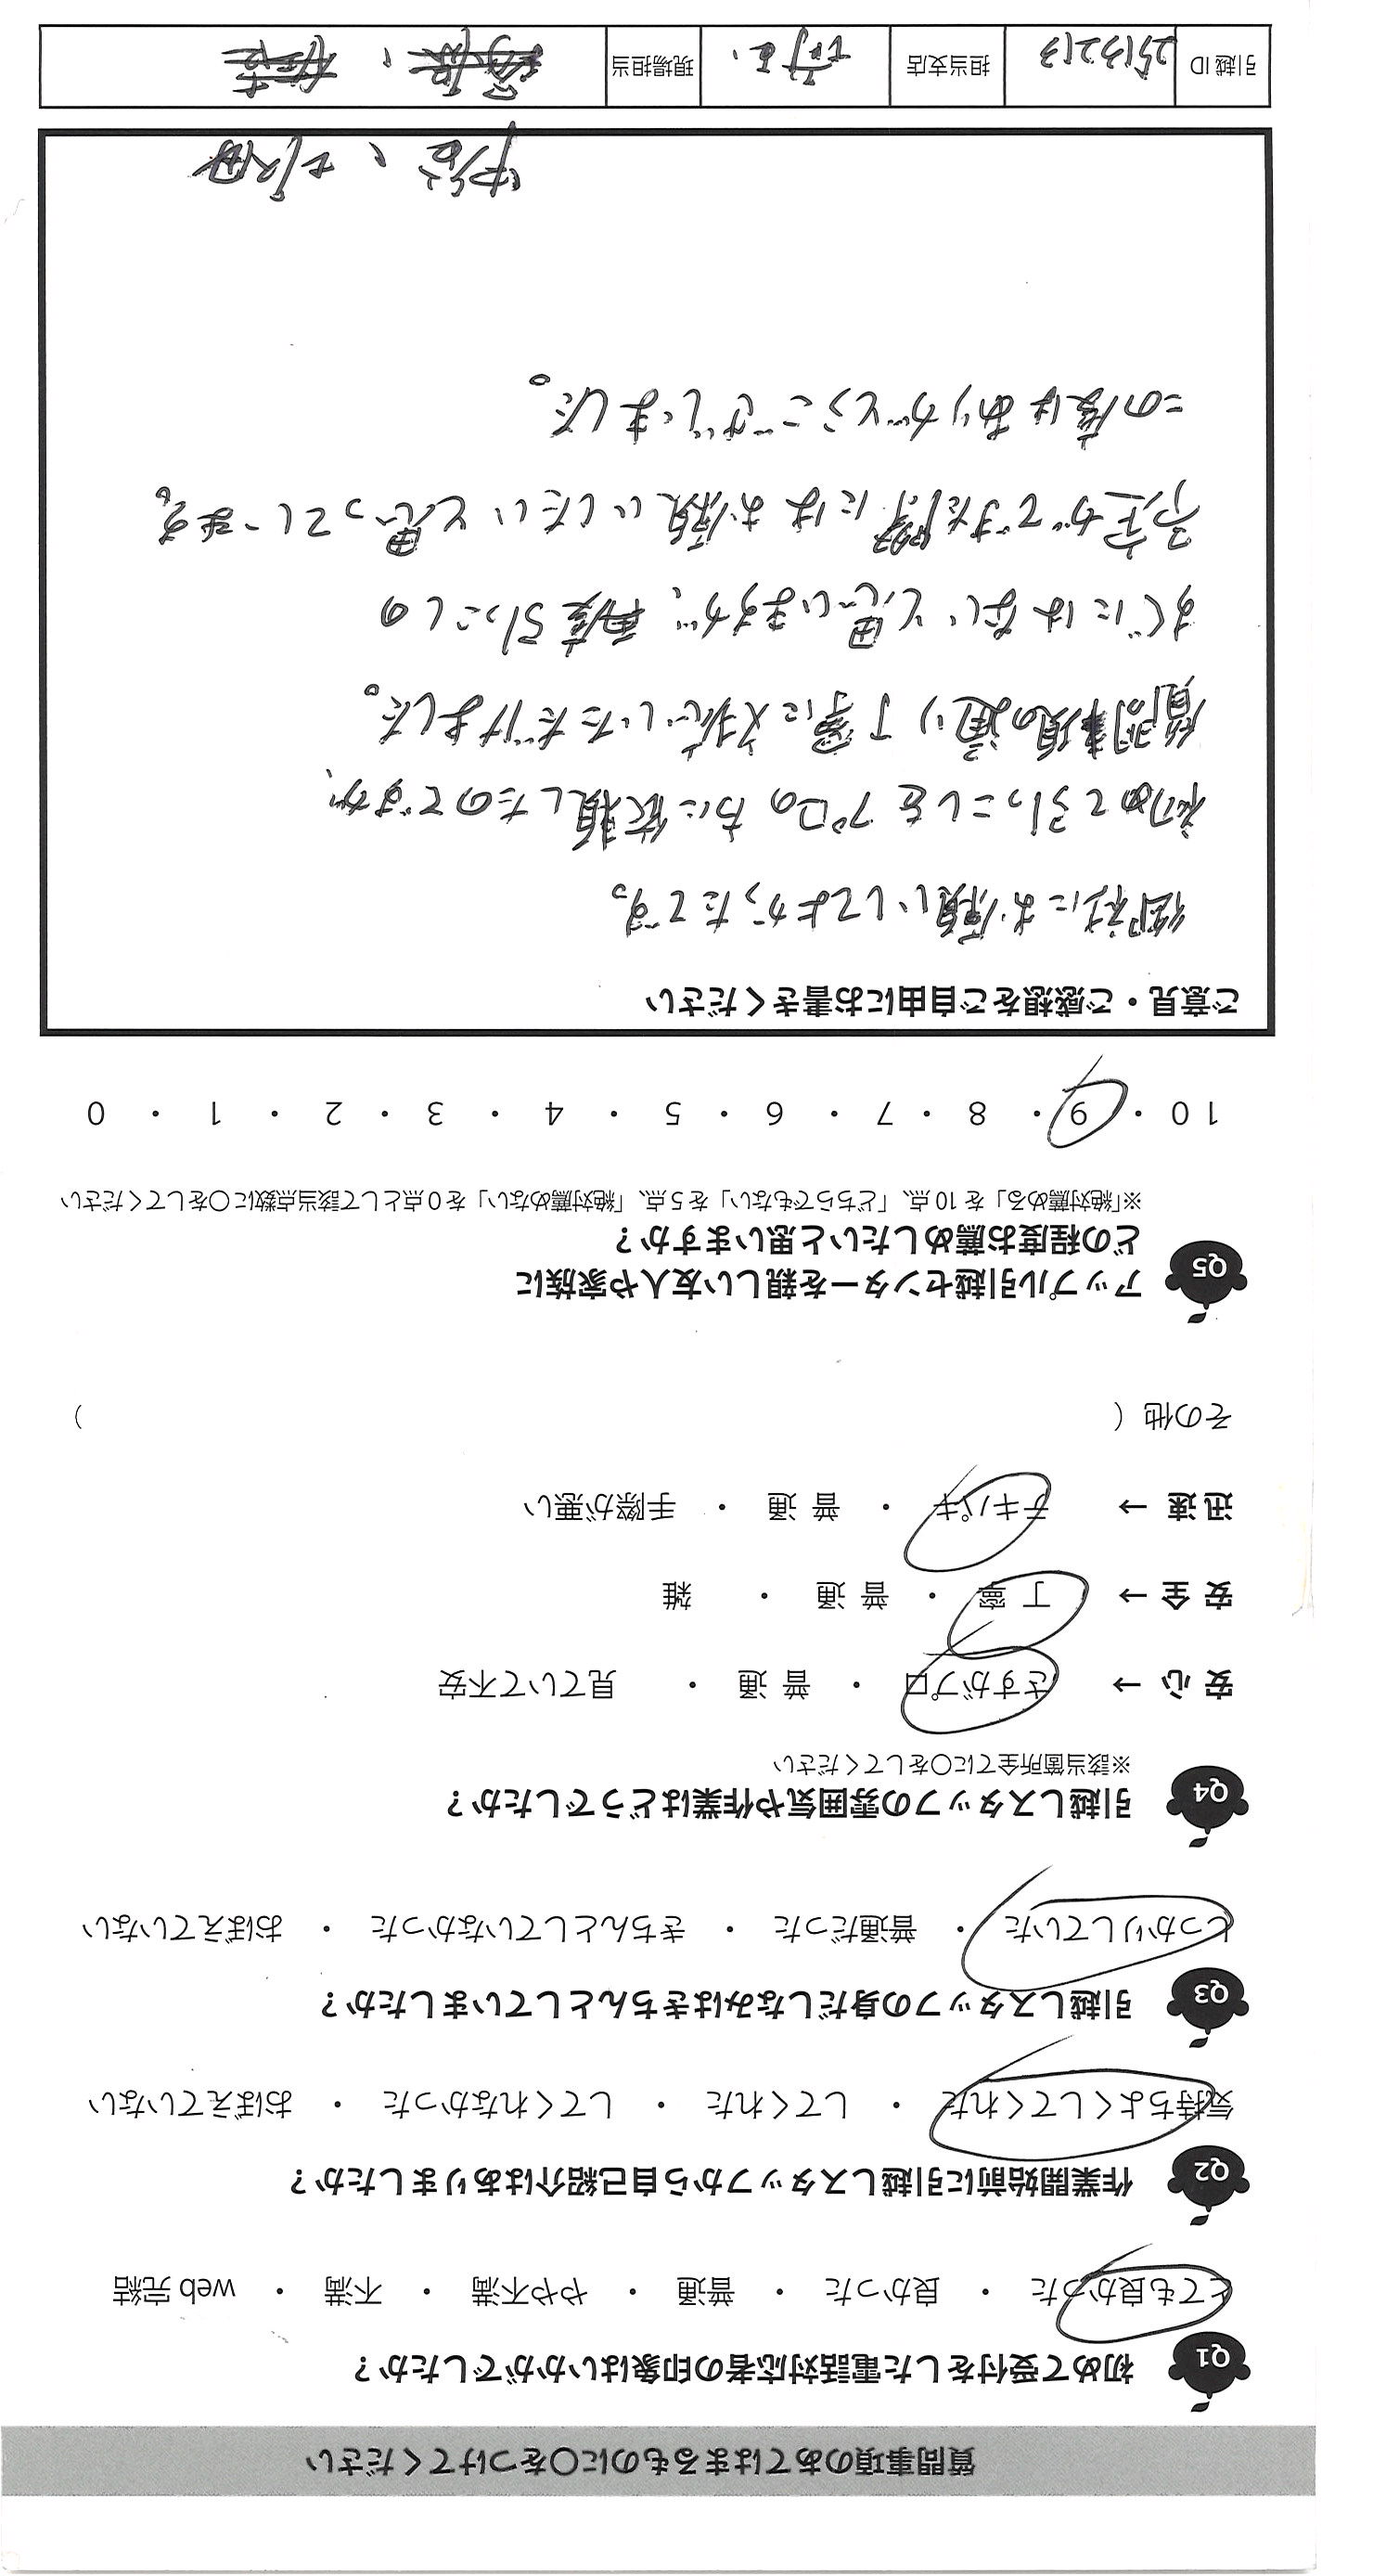 質問事項のあてはまるものに〇をつけてください
Q1 初めて受付をした電話対応者の印象はいかがでしたか？
とても良かった ・ 良かった ・ 普通 ・ やや不満 ・ 不満 ・ web 完結
Q2 作業開始前に引越しスタッフから自己紹介はありましたか？
気持ちよくしてくれた ・ してくれた ・ してくれなかった ・ おぼえていない
Q3 引越しスタッフの身だしなみはきちんとしていましたか？
しっかりしていた ・ 普通だった ・ きちんとしていなかった ・ おぼえていない
Q4 引越しスタッフの雰囲気や作業はどうでしたか？
※該当箇所全てに〇をしてください
安 心 → さすがプロ ・ 普 通 ・ 見ていて不安
安 全 → 丁 寧 ・ 普 通 ・ 雑
迅 速 → テキパキ ・ 普 通 ・ 手際が悪い
その他（ ）
Q5 アップル引越センターを親しい友人や家族に
どの程度お薦めしたいと思いますか？
※「絶対薦める」を 10 点、「どちらでもない」を 5 点、「絶対薦めない」を 0 点として該当点数に〇をしてください
10 ・ 9 ・ 8 ・ 7 ・ 6 ・ 5 ・ 4 ・ 3 ・ 2 ・ 1 ・ 0
ご意見・ご感想をご自由にお書きください
御社にお願いしてよかったです。
初めて引っこしをプロの方に依頼したのですが、
質問事項の通り丁寧に対応いただけました。
すぐにはないと思いますが、再度引っこしの
予定ができた際にはお願いしたいと思っています。
この度はありがとうございました。
引越 ID 担当支店 現場担当